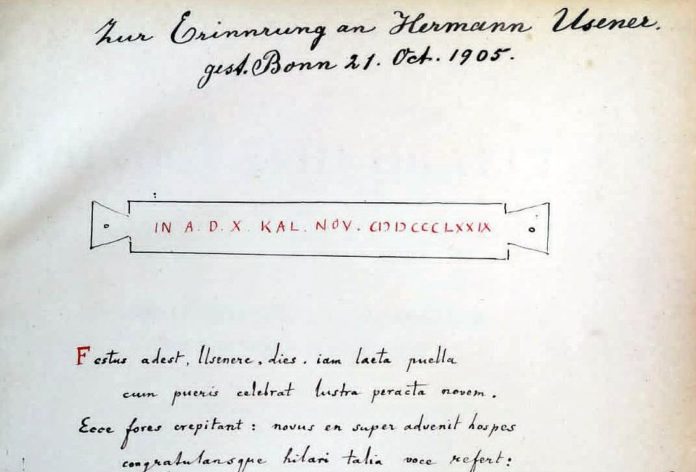 Zur Erinnrung an Hermann Usener.
gest. Bonn 21. Oct. 1905.
IN A. D. X. KAL. NOV. CIƆIƆCCCLXXIX
Festus adest, Usenere, dies. iam laeta puella
cum pueris celebrat lustra peracta novem.
Ecce fores crepitant: novus en super advenit hospes
congratulansque hilari talia voce refert: